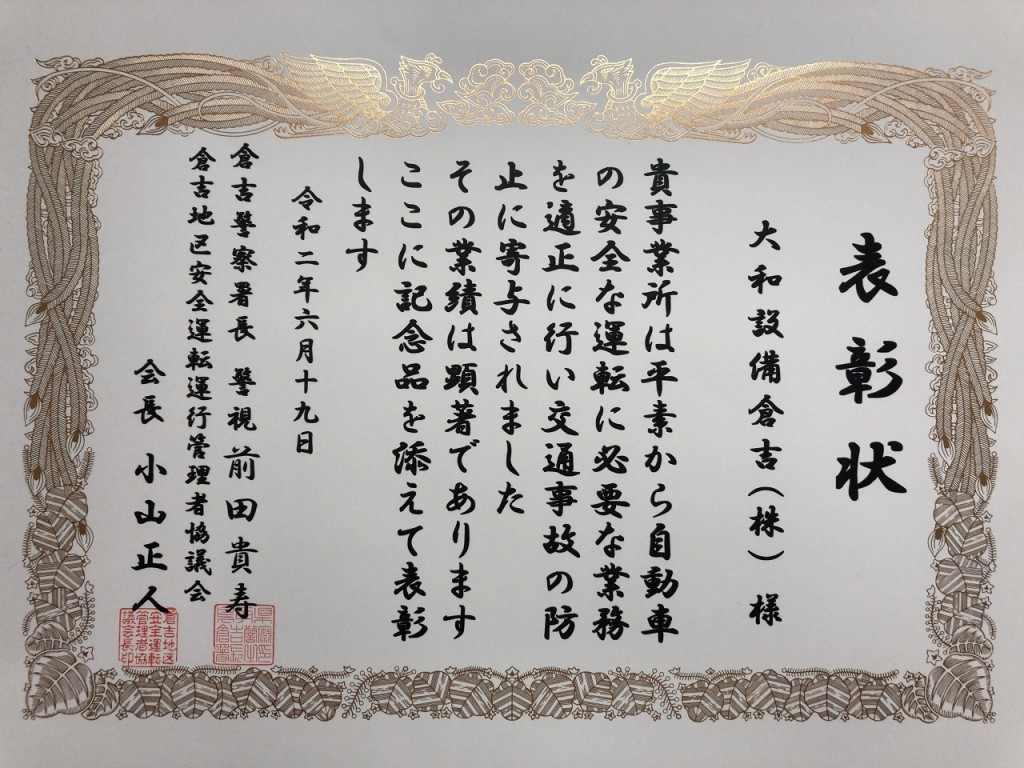 表彰状
大和設備倉吉(株)様
貴事業所は平素から自動車
の安全な運転に必要な業務
を適正に行い交通事故の防
止に寄与されました
その業績は顕著であります
ここに記念品を添えて表彰
します
令和二年六月十九日
倉吉警察署長 警視 前田貴寿
倉吉地区安全運転運行管理者協議会
会長 小山正人
倉吉地区
安全運転
管理者協
議会長印